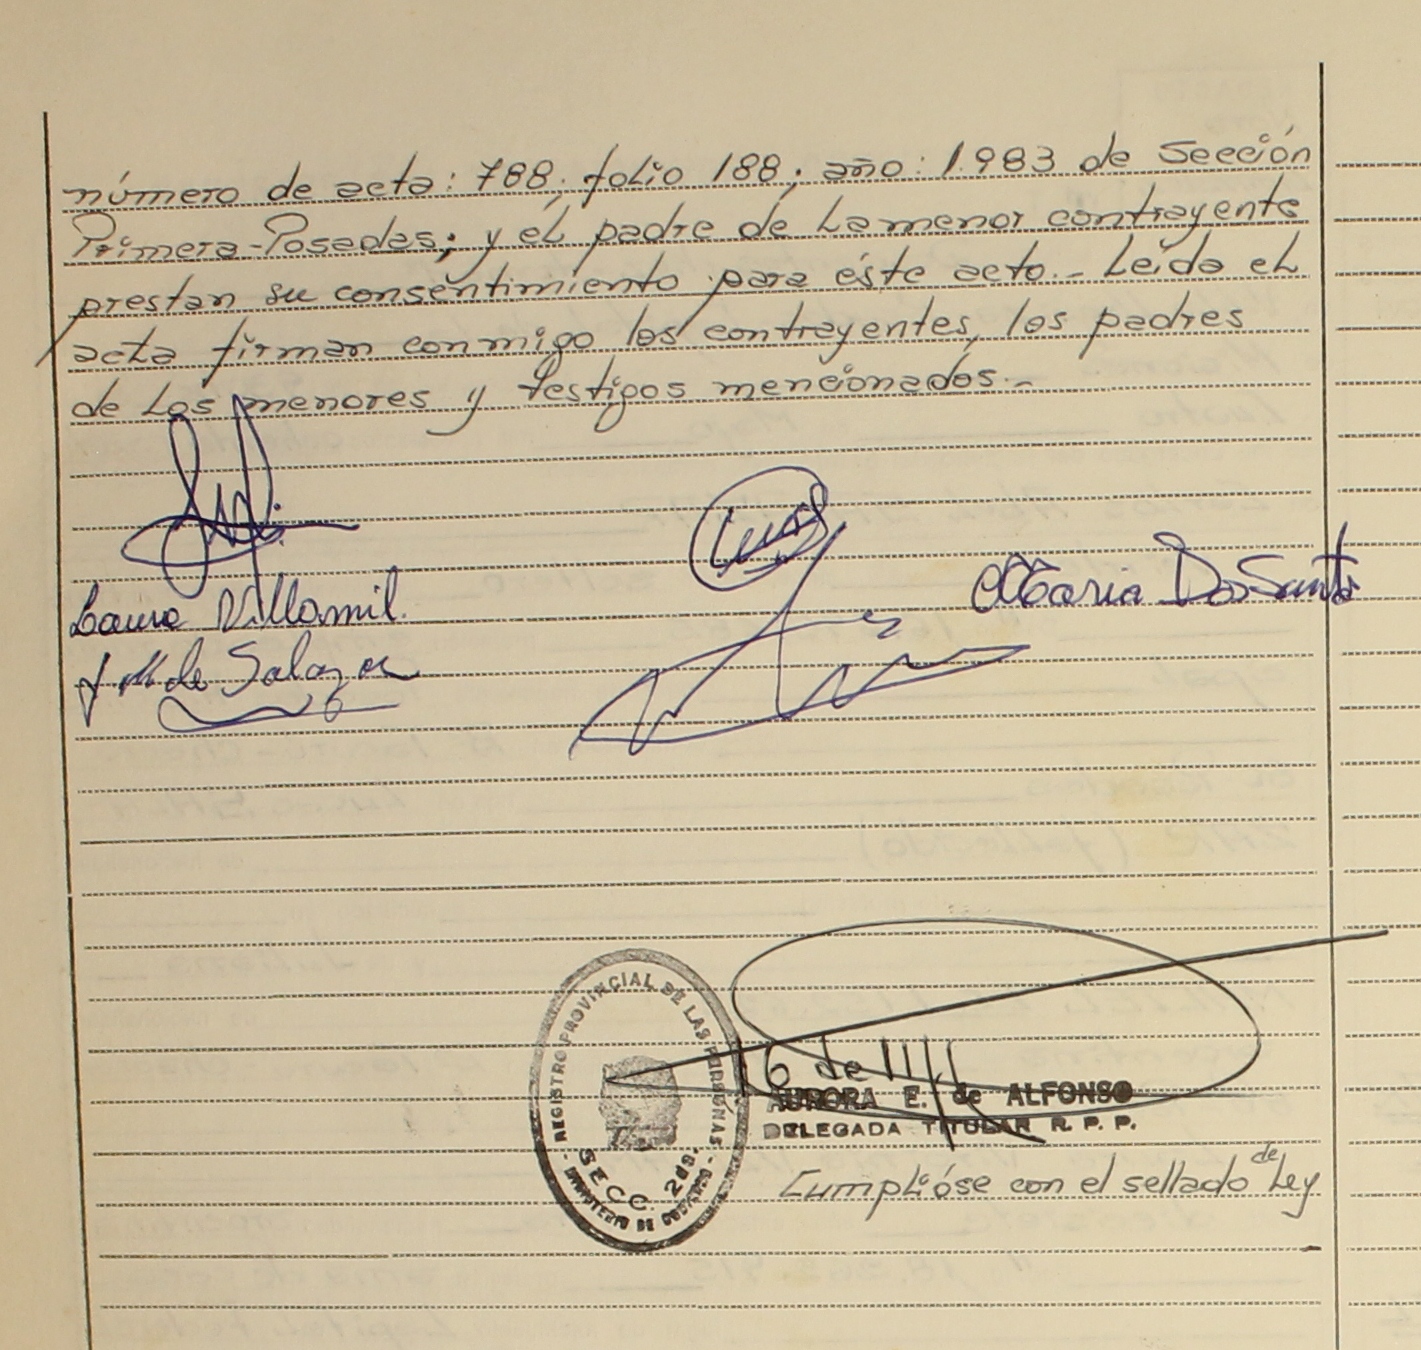 número de acta: 788; folio 188; año: 1.983 de Sección
Primera-Posadas; y él padre de La menor contrayente
prestan su consentimiento para éste acto.- Leída el
acta firman conmigo los contrayentes, los padres
de Los menores y testigos mencionados.-
Laura Villamil.
Maria Dos Santos
de Salazar
REGISTRO PROVINCIAL DE LAS PERSONAS
SECC. 2da.
MINISTERIO DE GOBIERNO
AURORA E. de ALFONSO
DELEGADA TITULAR R. P. P.
Cumplióse con el sellado de Ley